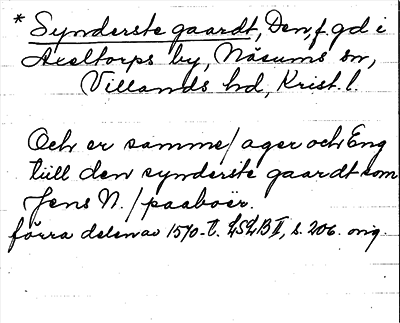 * Synderste gaardt, Den, f. gd i
Axeltorps by, Näsums sn,
Villands hd, Krist. l.
Och er samme / ager och Eng
tiill den synderste gaardt som
Jens N. / paaboer.
förra delen av 1570-t. LSLB II, s. 206. orig.